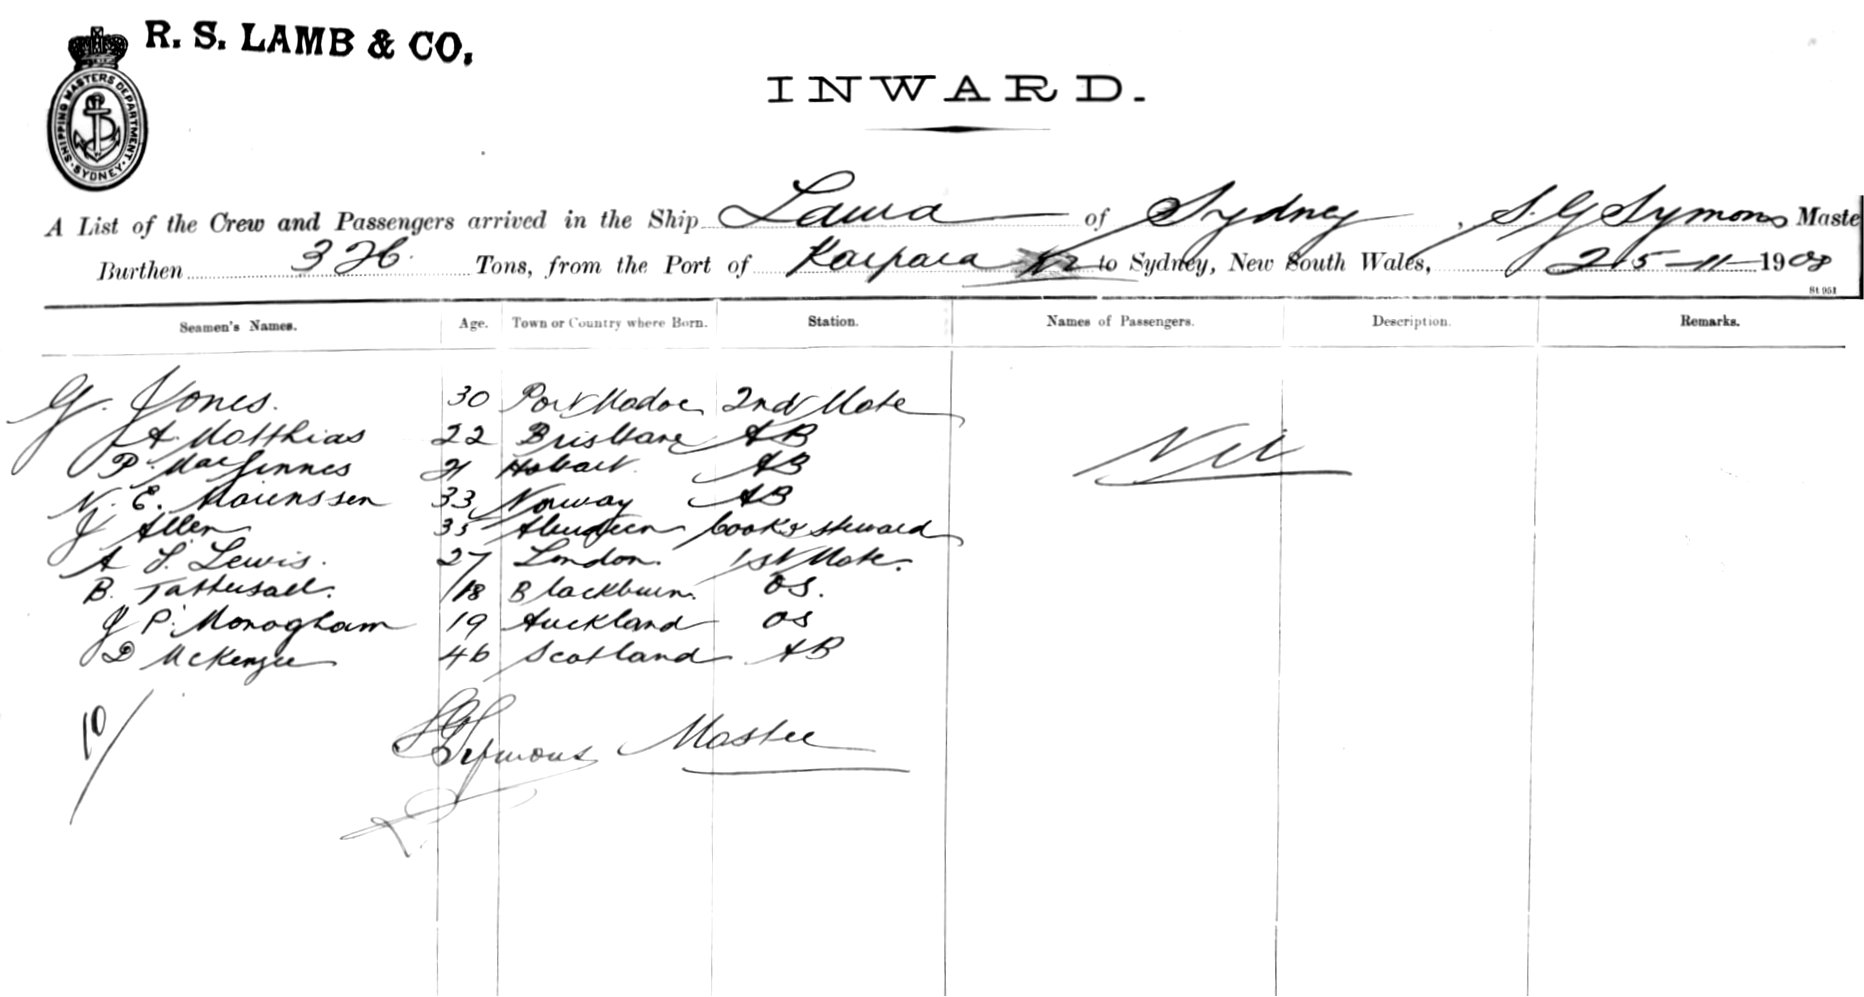 R. S. LAMB & CO.
SHIPPING MASTERS DEPARTMENT. SYDNEY
INWARD.
A List of the Crew and Passengers arrived in the Ship Laura of Sydney, S. G Symons Maste
Burthen 326 Tons, from the Port of Kaipara NZ to Sydney, New South Wales, 25-11-1908
St 951
Seamen's Names. Age. Town or Country where Born. Station. Names of Passengers. Description. Remarks.
G. Jones. 30 Port Madoc 2nd Mate
A. Matthias 22 Brisbane AB Nil
P. MacGinnes 21 Hobart AB
N. E. Mourenssen 33 Norway AB
J Allen 35 Aberdeen Cook & Steward
A S. Lewis. 27 London. 1st Mate.
B. Tattersall. 18 Blackburn. OS.
J P. Monogham 19 Auckland OS
D McKenzie 46 Scotland AB
10/
S G Symons Master